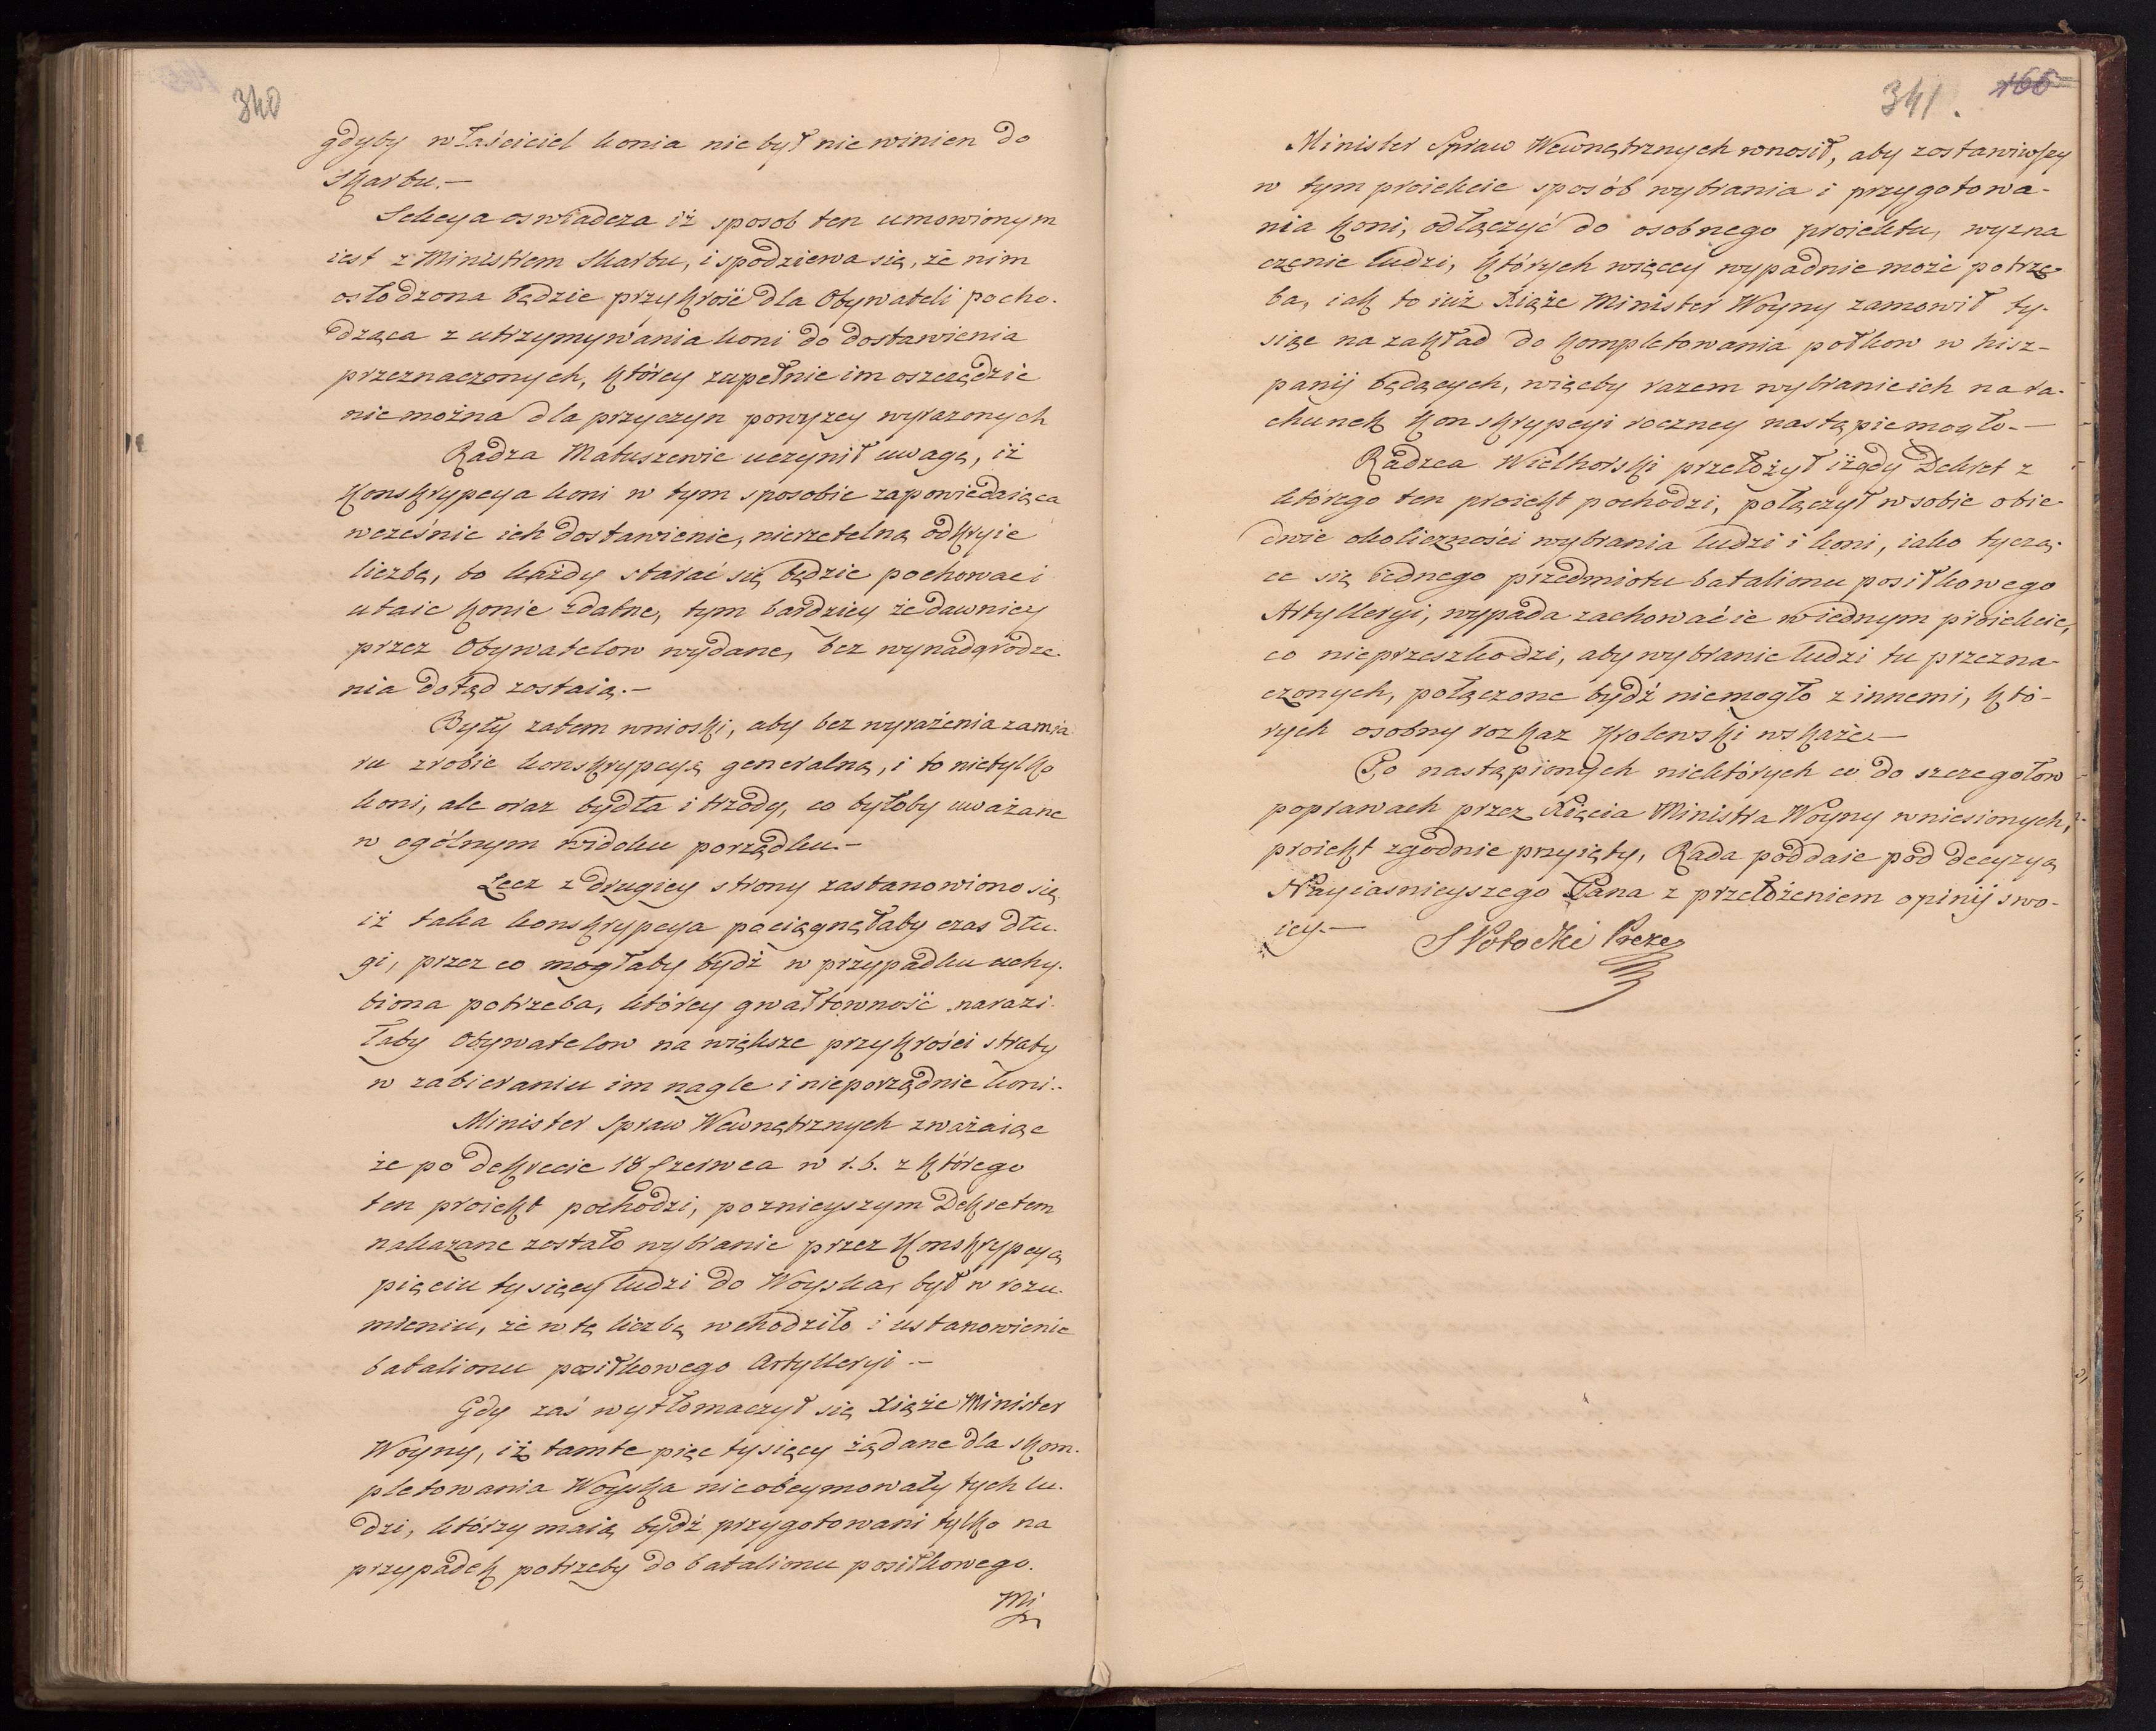 340
gdyby właściciel konia nie był nie winien do
Skarbu.—
Sekcya oswiadcza iż sposob ten umowionym
iest z Ministrem Skarbu, i spodziewa się, że nim
osłodzona będzie przykrość dla Obywateli pocho-
dząca z utrzymywania koni do dostawienia
przeznaczonych, którey zupełnie im oszczędzic
nie można dla przyczyn powyzey wyrazonych
Radza Matuszewic uczynił uwagę, iż
Konskrypcya koni w tym sposobie zapowiedaiąca
wcześnie ich dostawienie, nierzetelną odkryie
liczbę, bo każdy starać się będzie pochowac i
utaic konie zdatne, tym bardziey że dawniey
przez Obywatelow wydane, bez wynadgrodze-
nia dotąd zostaią.—
Były zatem wnioski, aby bez wyrażenia zamia
ru zrobic konskrypcyą generalną, i to nietylko
koni, ale oraz bydła i trzody, co byłoby uważane
w ogólnym widoku porządku.—
Lecz z drugiey strony zastanowiono się
iż taka konskrypcya pociągnęłaby czas dłu-
gi, przez co mogłaby bydź w przypadku uchy-
biona potrzeba, którey gwałtowność narazi-
łaby Obywatelow na większe przykrości straty
w zabieraniu im nagle i nieporządnie koni.-
Minister Spraw Wewnętrznych zważaiąc
że po dekrecie 18 Czerwca w r. b. z którego
ten proiekt pochodzi, poznieyszym Dekretem
nakazane zostało wybranie przez Konskrypcyą
pięciu tysięcy ludzi do Woyska, był w rozu-
mieniu, że w tę liczbę wchodziło i ustanowienie
batalionu posiłkowego Artylleryi.—
Gdy zaś wytłomaczył się Xiąże Minister
Woyny, iż tamte pięc tysięcy żądane dla skom-
pletowania Woyska nieobeymowały tych lu-
dzi, którzy maią bydź przygotowani tylko na
przypadek potrzeby do batalionu posiłkowego.
Mi
341. 166
Minister Spraw Wewnętrznych wnosił, aby zostawiwszy
w tym proiekcie sposób wybrania i przygotowa-
nia koni, odłączyć do osobnego proiektu, wyzna
czenie ludzi, których więcey wypadnie może potrze
ba, iak to iuż Xiąże Minister Woyny zamowił ty-
siąc na zakład do kompletowania połkow w hisz-
panij będących, więcby razem wybranie ich na ra-
chunek Konskrypcyi roczney nastąpic mogło.—
Radzca Wielhorski przełożył iż gdy Dekret z
którego ten proiekt pochodzi, połączył w sobie obie-
dwie okoliczności wybrania ludzi i koni, iako tyczą-
ce się iednego przedmiotu batalionu posiłkowego
Artylleryi, wypada zachować ie w iednym proiekcie,
co nieprzeszkodzi, aby wybranie ludzi tu przezna-
czonych, połączone bydź niemogło z innemi, któ-
rych osobny rozkaz Krolewski wskaże.—
Po nastąpionych niektórych co do szczegołow
poprawach przez Xięcia Ministra Woyny wniesionych,
proiekt zgodnie przyięty, Rada poddaie pod decyzyą
Nayiasnieyszego Pana z przełożeniem opinij swo-
iey.—
S Potocki Prezes